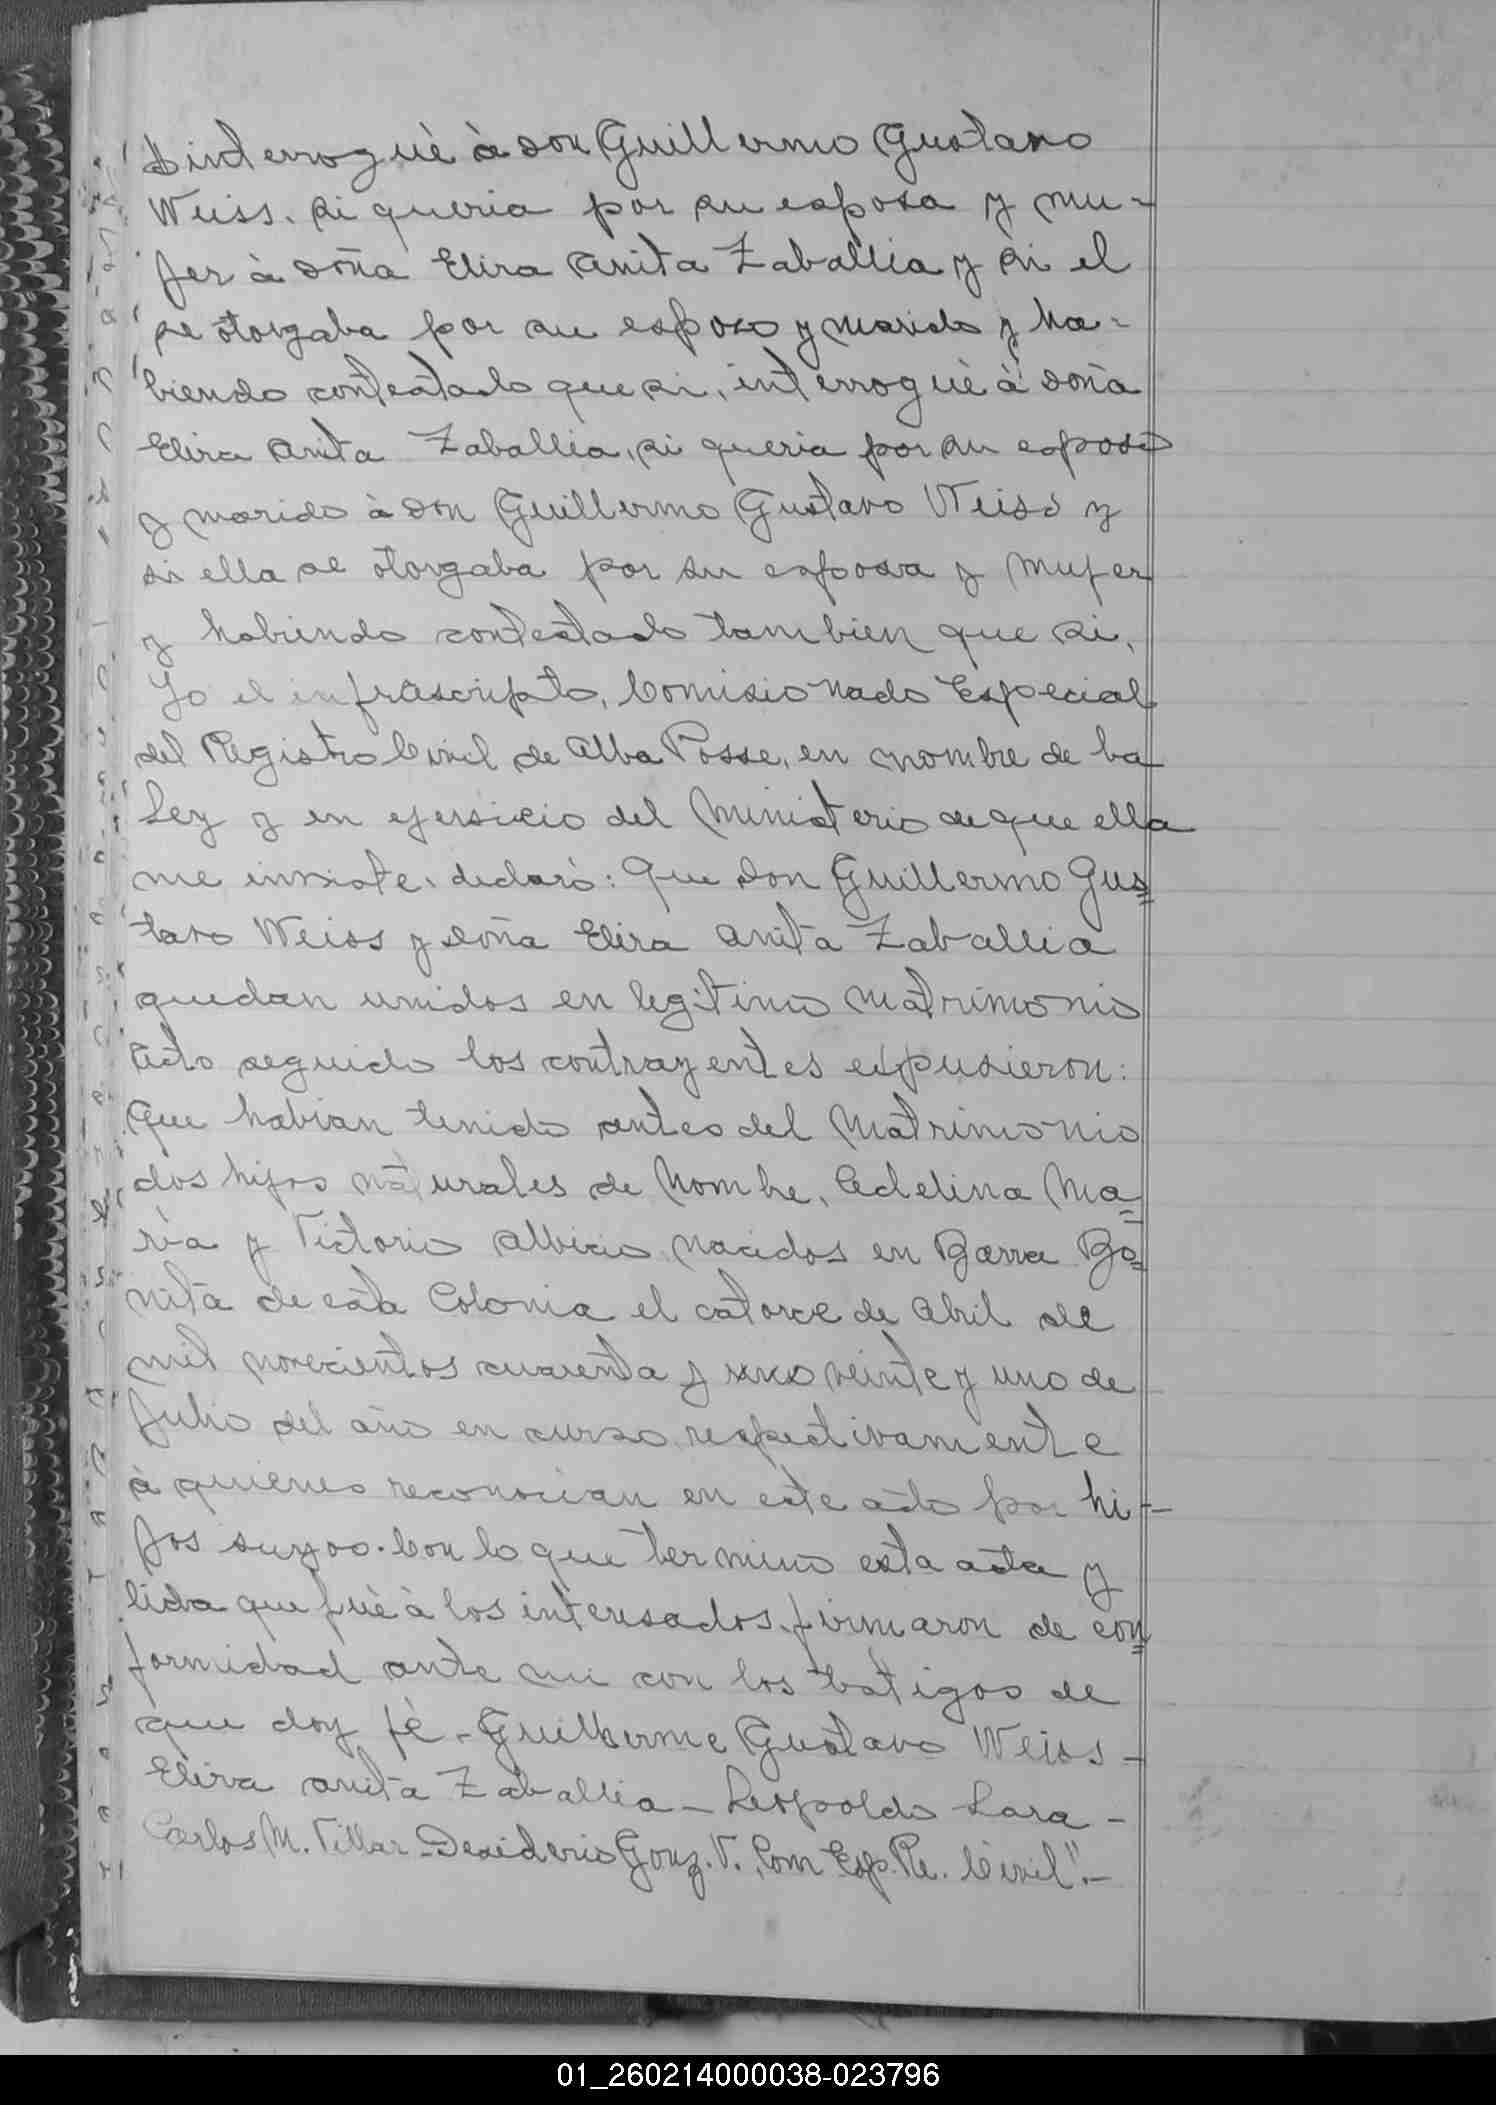 interroguè à don Guillermo Gustavo
Weiss. si queria por su esposa y mu-
jer à doña Elira Anita Zaballia y si el
se otorgaba por su esposo y marido y ha-
biendo contestado que si, interroguè à doña
Elira Anita Zaballia, si queria por su esposo
y marido à don Guillermo Gustavo Weiss y
si ella se otorgaba por su esposa y mujer
y habiendo contestado tambien que si,
Yo el infrascripto, Comisionado Especial
del Registro Civil de Alba Posse, en nombre de la
Ley y en ejersicio del Ministerio de que ella
me inviste, declarò: Que don Guillermo Gus=
tavo Weiss y doña Elira Anita Zaballia
quedan unidos en legitimo Matrimonio
Acto seguido los contrayentes expusieron:
Que habian tenido antes del Matrimonio
dos hijos naturales de Nombre, Adelina Ma=
ria y Victorio Albicio nacidos en Barra Bo=
nita de esta Colonia el catorce de Abril de
mil novecientos cuarenta y veinte y uno de
Julio del año en curso respectivamente
à quienes reconocian en este acto por hi-
jos suyos. Con lo que termino esta acta y
lida que fuè à los interesados, firmaron de con=
formidad ante mi con los testigos de
que doy fè - Guilherme Gustavo Weiss -
Elira Anita Zaballia - Leopoldo Lara -
Carlos M. Villar - Desiderio Gonz. V. Com Esp. Re. Civil".-
01_260214000038-023796